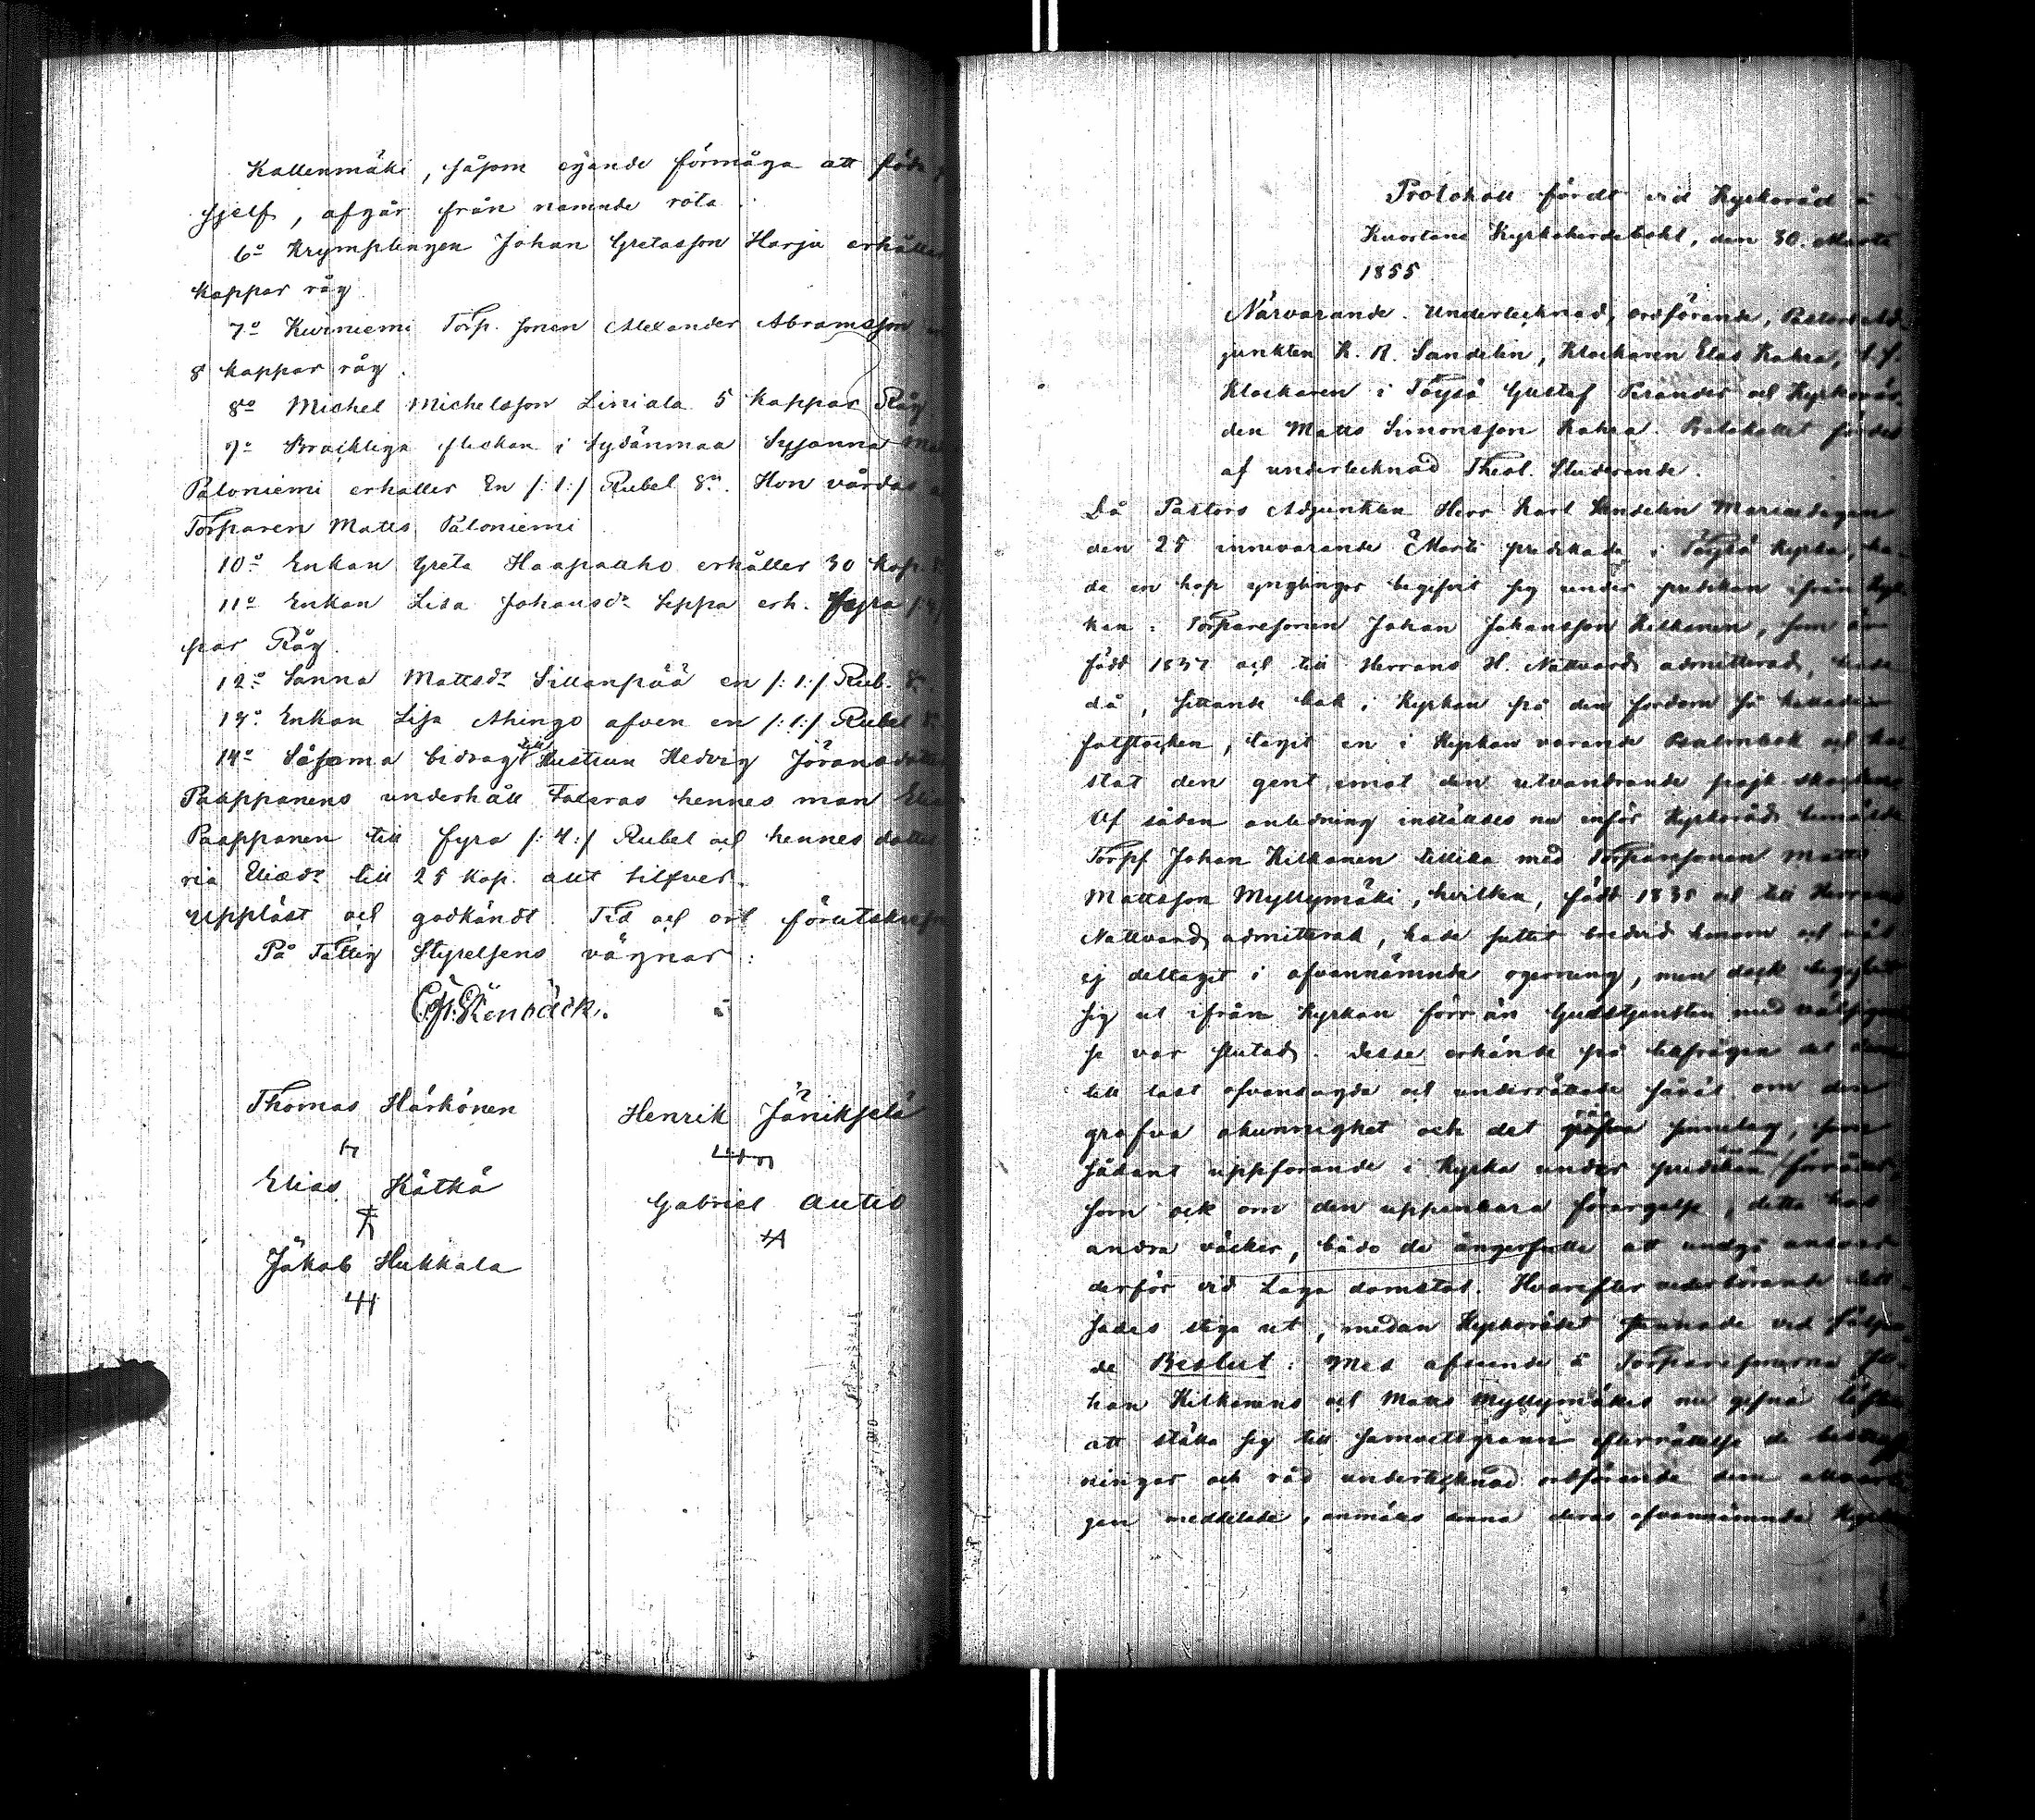 Kallenmäki, såsom egande förmåga att föda
sjelf, afgår från namnde rota.
6:o Krymplingen Johan Gretasson Harju erhåller
kappar råg.
7:o Kuiniemi Torp. sonen Alexander Abramsson
8 kappar råg.
8:o Michel Michelsson Liniala 5 kappar Råg
9:o Bräckliga flickan i Sydänmaa Susanna
Paloniemi erhaller En /:1:/ Rubel S:r. Hon vårdas
Torparen Matts Paloniemi
10:o Enkan Greta Haapaaho erhåller 30 kop.
11:o Enkan Lisa Johansd:r Seppä erh. fyra
par Råg.
12:o Sanna Mattsd:r Sillanpää en /:1:/ Rub. S:r
13:o Enkan Lisa Ahingo afven en /:1:/ Rubel S:r
14:o Såsom bidrag till Hustrun Hedvig Jöransdotter
Paappanens underhåll Taxeras hennes man Elias
Paappanen till fyra /:4:/ Rubel och hennes dotter
ria Eliæd:r till 25 kop. allt silfver.
Uppläst och godkändt. Tid och ort förutskrefne
På Fattig Styrelsens vägnar:
Thomas Härkönen Henrik Jäniksela
Elias Kätkä Gabriel Autio
Jakob Hukkala
Protokoll fördt vid Kyrkoråd i
Kuortane Kyrkoherdebohl, den 30. Martii
1855
Närvarande. Undertecknad, ordförande, Pastors Ad-
junkten K. R. Sandelin, Klockaren Elias Kahra, t.f.
Klockaren i Töysä Gustaf Terander och Kyrkovär-
den Matts Simonsson Kahra. Protokollet fördes
af undertecknad Theol. Studerande.
Då Pastors Adjunkten Herr Karl Sandelin Mariædagen
den 25 innevarande Martii predikade i Töysä kyrka, ha-
de en hop ynglingar begifvit sig under predikan ifrån kyr-
kan. Torparesonen Johan Johansson Kilkanen, som är
född 1837 och till Herrans H. Nattvard admitterad, hade
då, sittande bak i Kyrkan på den fordom så kallade
fotstocken, tagit en i Kyrkan varande Psalmbok och ka-
stat den gent emot den utvandrande pojk skaran.
Af sådan anledning inställdes nu inför Kyrkoråd bemälde
Torps Johan Kilkanen tillika med Torparesonen Matts
Mattsson Myllymäki, hvilken, född 1835 och till Herrans
Nattvard admitterad, hade suttit bredvid honom och väl
ej deltagit i ofvannämnde ogerning, men dock begifvit
sig ut ifrån Kyrkan förr än Gudstjensten med välsignel-
se var slutad. Desse erkände på tillfrågan det dem
till last ofvansagda och underrättade såväl om den
grofva okunnighet och det sinnelag, som
sådant uppförande i Kyrka under predikan förråder,
som ock om den uppenbara förargelse, detta hos
andra väcker, bådo de ångerfulle att undgå ansvar
derför vid Laga domstol. Hvarefter vederbörande till-
sades stiga ut, medan Kyrkorådet stannade vid följan-
de Beslut: Med afseende å Torparesonerna Jo-
han Kilkanens och Matts Myllymäkis nu gifna löfte
att ställa sig till samvetsgrann efterrättelse de bestraff-
ningar och råd undertecknad ordförande dem allvarli-
gen meddelade, anmäles denna deras ofvannämnda